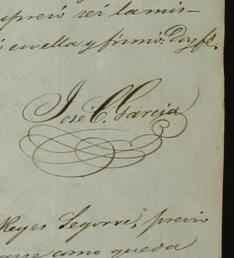 ser la mis-
en ella y firmó. Doy fé.
José C. Garcia
Reyes Segorve, previo
como queda